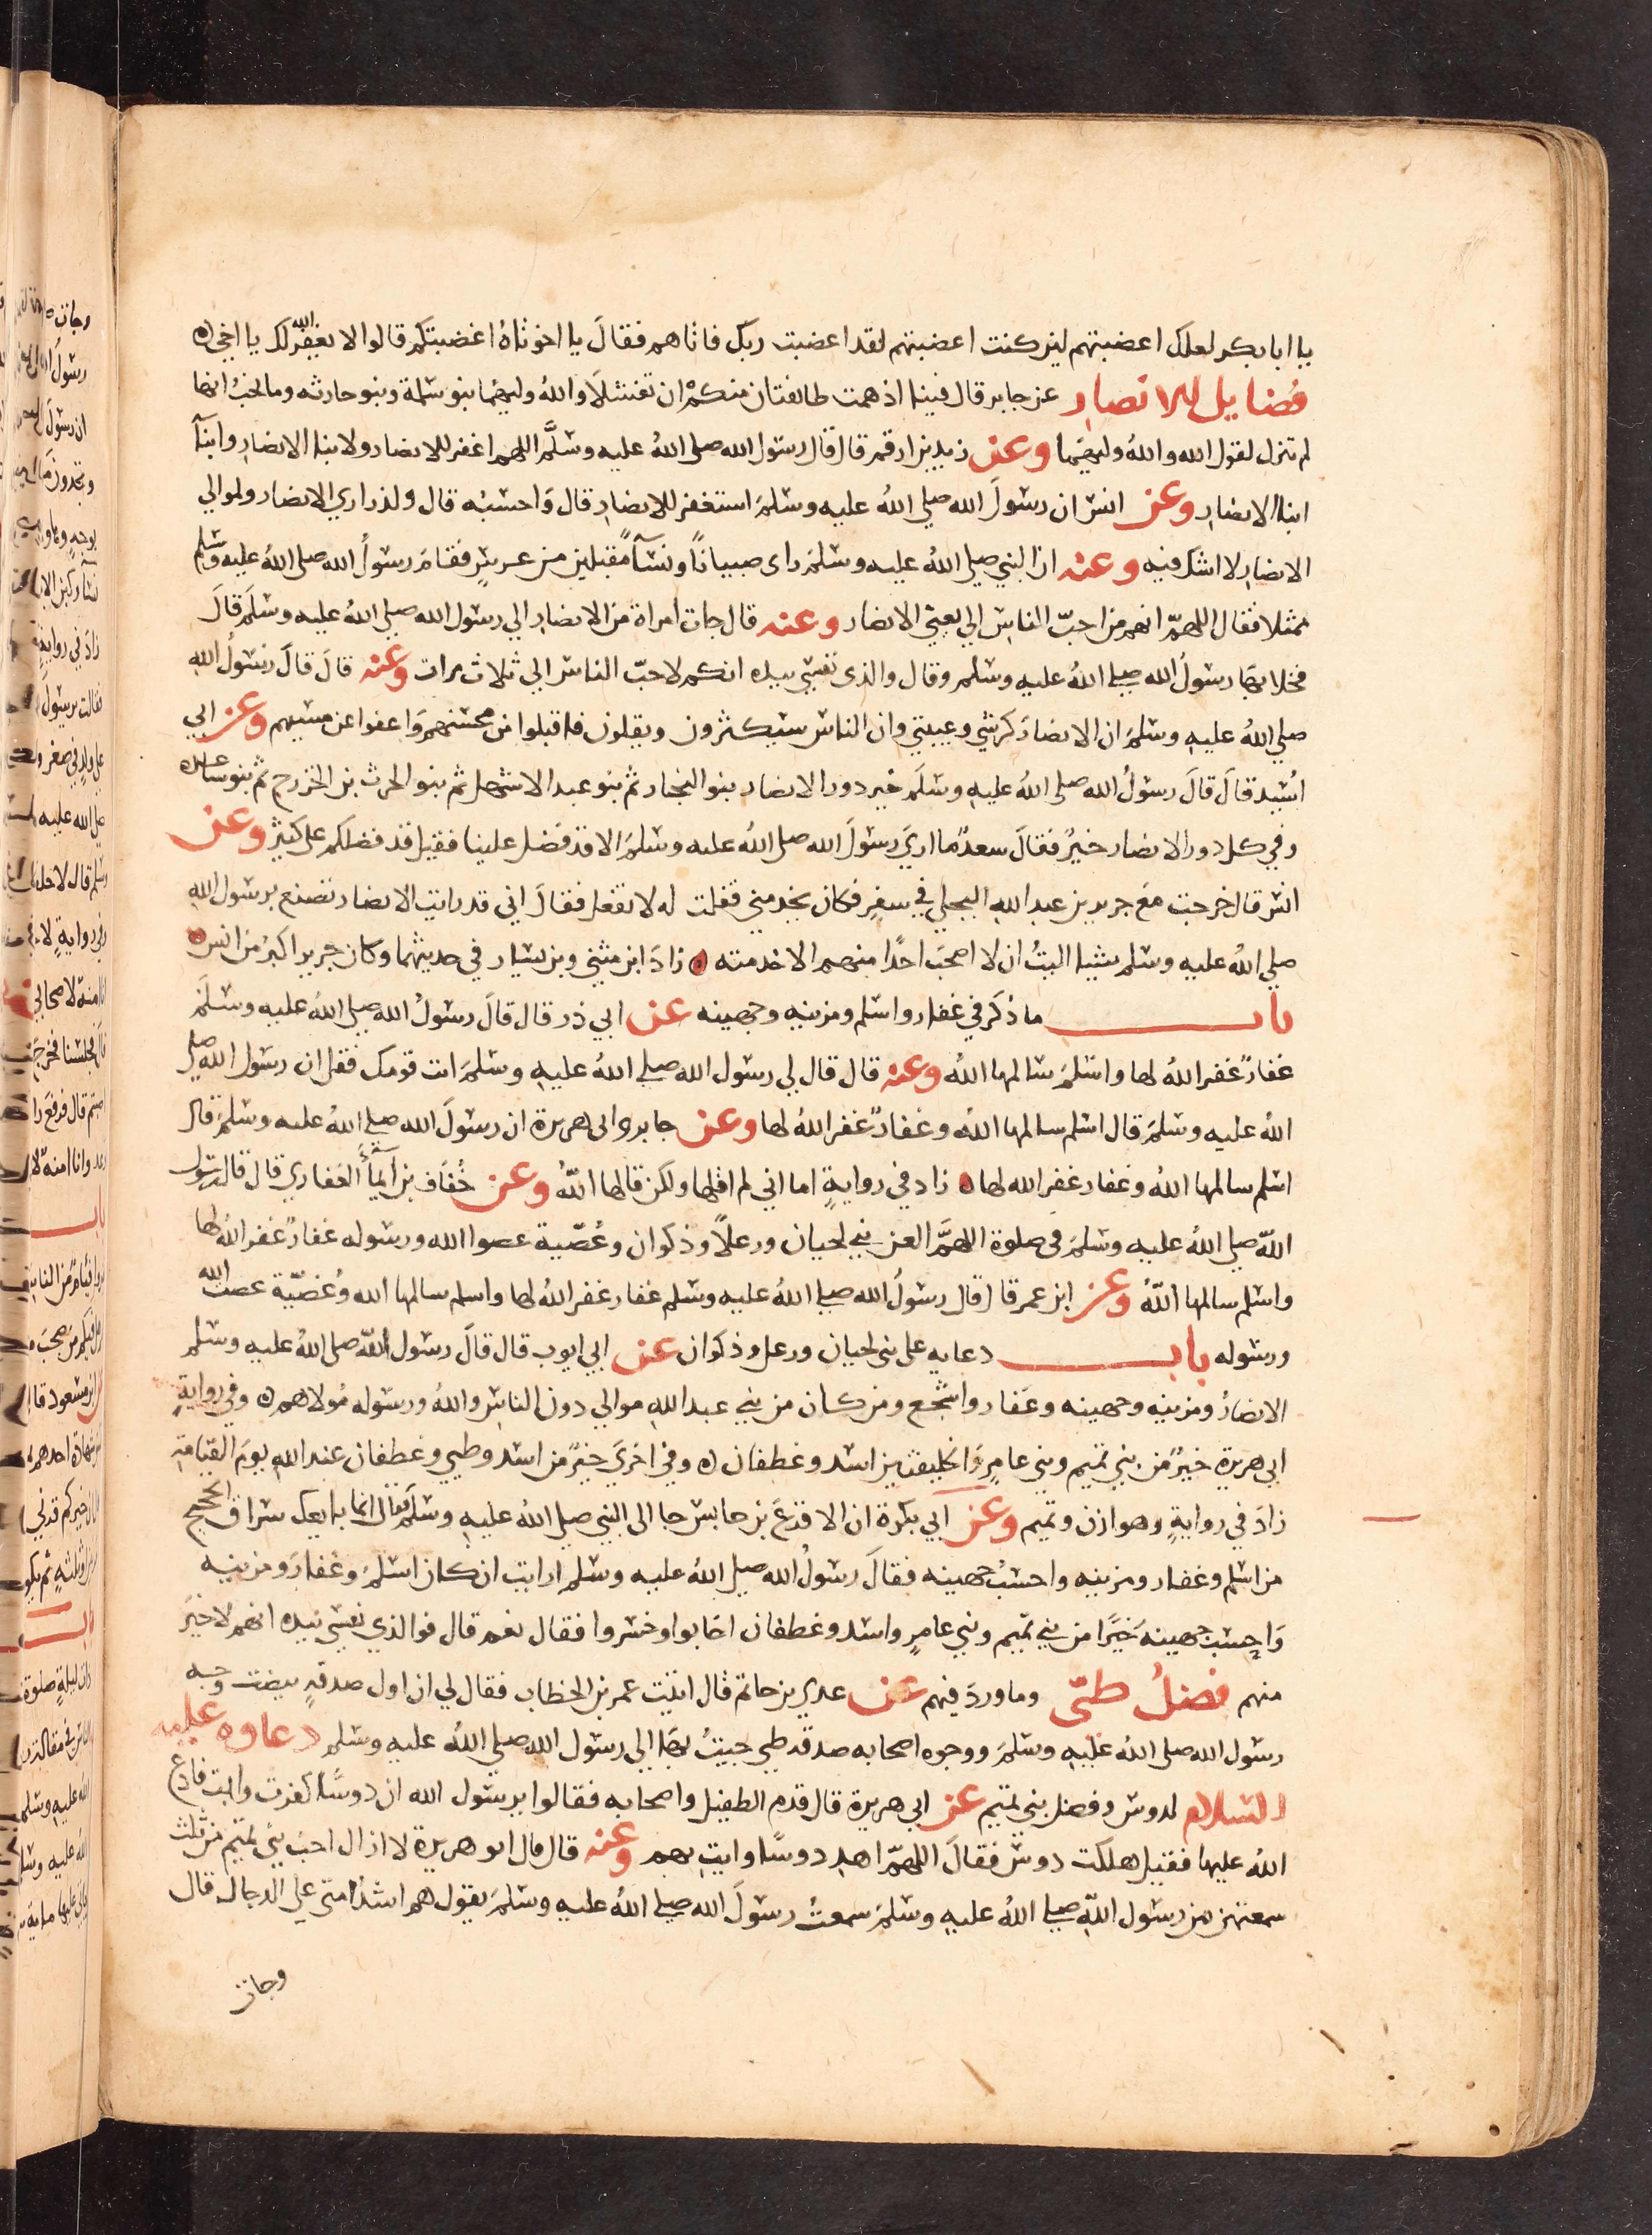 يا ابا بكر لعلك اغضبتهم لين كنت اغضبتهم لقد اغضبت ربك فاتاهم فقالَ يا اخوتاهُ اغضبتكم قالوا لا يغفر الله لك يا اخي ه
فضايل الانصار عن جابر قال فينا اذ همت طائفتان منكم ان تفشلا والله وليهما بنو سلمة وبنو حارثه وما نحبُ انها
لم تنزل لقول الله واللهُ وليهما وعن زيد بن ارقم قال قال رسول الله صلى اللهُ عليه وسلَّم اللهم اغفر للانصار ولابنا الانصار وابنآ
ابنا الانصار وعن انس ان رسولَ الله صلي اللهُ عليه وسلمَ استغفر للانصار قال وَاحسبُه قال ولذراري الانصار ولموالي
الانصار لا اشك فيه وعنه ان النبي صلي اللهُ عليه وسلمَ راى صبيانًا ونسآً مُقبلين من عرسٍ فقامَ رسولُ الله صلى اللهُ عليه وسلم
ممثلا فقال اللهمّ انهم من احبّ الناسِ الي يعني الانصار وعنه قال جات امراة من الانصار الي رسول الله صلي اللهُ عليه وسلمَ قالَ
فخلا بها رسولُ الله صلي اللهُ عليه وسلم وقال والذى نفسي بيده انكم لاحبّ الناس الي ثلاث مرات وعنه قالَ قالَ رسولُ اللهِ
صلي اللهُ عليه وسلمَ ان الانصارَ كرشي وعيبتي وان الناس سيكثرون ويقلون فاقبلوا من محسنهم وَاعفوا عن مسيهم وعن ابي
اسُيد قالَ قالَ رسولُ الله صلى اللهُ عليهِ وسلمَ خير دور الانصار بنو النجار ثم بنو عبد الاشهل ثم بنو الحرث بن الخزرج ثم بنو ساعده
وفي كل دور الانصار خيرٌ فقالَ سعدٌ ما اريَ رسولَ الله صلى اللهُ عليه وسلمَ الا قد فضل علينا فقيل قد فضلكم على كثير وعن
انس قال خرجت معَ جرير بن عبد اللهِ البجلي في سفرٍ فكان يخدمني فقلت له لا تفعل فقالَ اني قد رايت الانصار تصنع برسول اللهِ
صلي اللهُ عليه وسلم شيئا اليتُ ان لا اصحبَ احدًا منهم الا خدمته ه زادَ ابن مثني وبن بشار في حديثهما وكان جرير اكبرُ من انس ه
باب ما ذكر في غفار واسلم ومزينه وجهينه عن ابي ذر قال قالَ رسولُ الله صلي اللهُ عليه وسلمَ
غفارٌ غفر اللهُ لها واسلمُ سالمها اللهُ وعنه قال قال لي رسول الله صلي اللهُ عليهِ وسلمَ ائت قومك فقل ان رسول الله صلى
اللهُ عليه وسلمَ قال اسلم سالمها اللهُ وغفارٌ غفر اللهُ لها وعن جابر وابي هريرة ان رسولَ الله صلي اللهُ عليه وسلمَ قال
اسلم سالمها اللهُ وغفار غفر الله لها ه زاد في روايةٍ اما اني لم اقلها ولكن قالها اللّهُ وعن خُفاف بن ايمآء الغفاري قال قال رسول
اللّه صلي اللهُ عليه وسلمَ في صلوة اللهمَّ العن بني لحيان ورعلًا وذكوان وعُصّية عصوا الله ورسوله غفارٌ غفر اللهُ لها
واسلم سالمها اللّهُ وعن ابن عمر قال قال رسولُ الله صلي اللهُ عليه وسلم غفار غفر اللهُ لها واسلم سالمها الله وعُصّيّة عصت الله
ورسوله باب دعايه على بنى لحيان ورعل وذكوان عن ابي ايوب قال قالَ رسول اللّه صلى اللهُ عليه وسلم
الانصارُ ومزينه وجهينه وغفار واشجع ومن كان من بني عبد اللهِ موالي دون الناسِ واللهُ ورسوله مُولاهم ه وفي روايةِ
ابي هريرة خيرٌ من بني تميم وبني عامرٍ وَالحليفين اسد وغطفان ه وفي اخريَ خيرٌ من اسد وطي وغطفان عند اللهِ يومَ القيامةِ
زادَ في روايةٍ وهوازن وتميم وعن ابي بكرة ان الاقرعَ بن حابس جا الى النبي صلي اللهُ عليهِ وسلمَ فقالَ انما بايعك سراق الحجيج
من اسلم وغفار ومزينه واحسبُ جهينه فقالَ رسولُ الله صلي اللهُ عليه وسلم ارايت ان كان اسلمُ وغفارَ ومزينه
وَاحسِب جهينهُ خيرًا من بني تميم وبني عامرٍ واسد وغطفان اخابوا وخسروا فقال نعم قال فوالذي نفسي بيده انهم لاخيرَ
منهم فضلُ طيّ وما وردَ فيهم عن عدي بن حاتم قال اتيت عمر بن الخطاب فقال لي ان اول صدقهٍ بيضت وجه
رسول الله صلى اللهُ عليهِ وسلمَ ووجوه اصحابه صدقه طي جيتُ بها الي رسول الله صلي اللهُ عليه وسلم دعاوه عليه
السلام لدوس وفضل بني تميم عن ابي هريرة قال قدم الطفيل واصحابه فقالوا يرسول الله ان دوسًا كفرت وابت فادع
اللهُ عليها فقيل هلكت دوس فقالَ اللهمّ اهدِ دوسًا وايتِ بهم وعنه قال قال ابو هريرة لا ازال احبُ بني تميم من ثلث
سمعتهن من رسول اللّهِ صلي اللهُ عليهِ وسلمَ سمعتُ رسولَ الله صلي اللهُ عليه وسلمَ يقول هم اشدُ امتى على الدجال قال
وجات